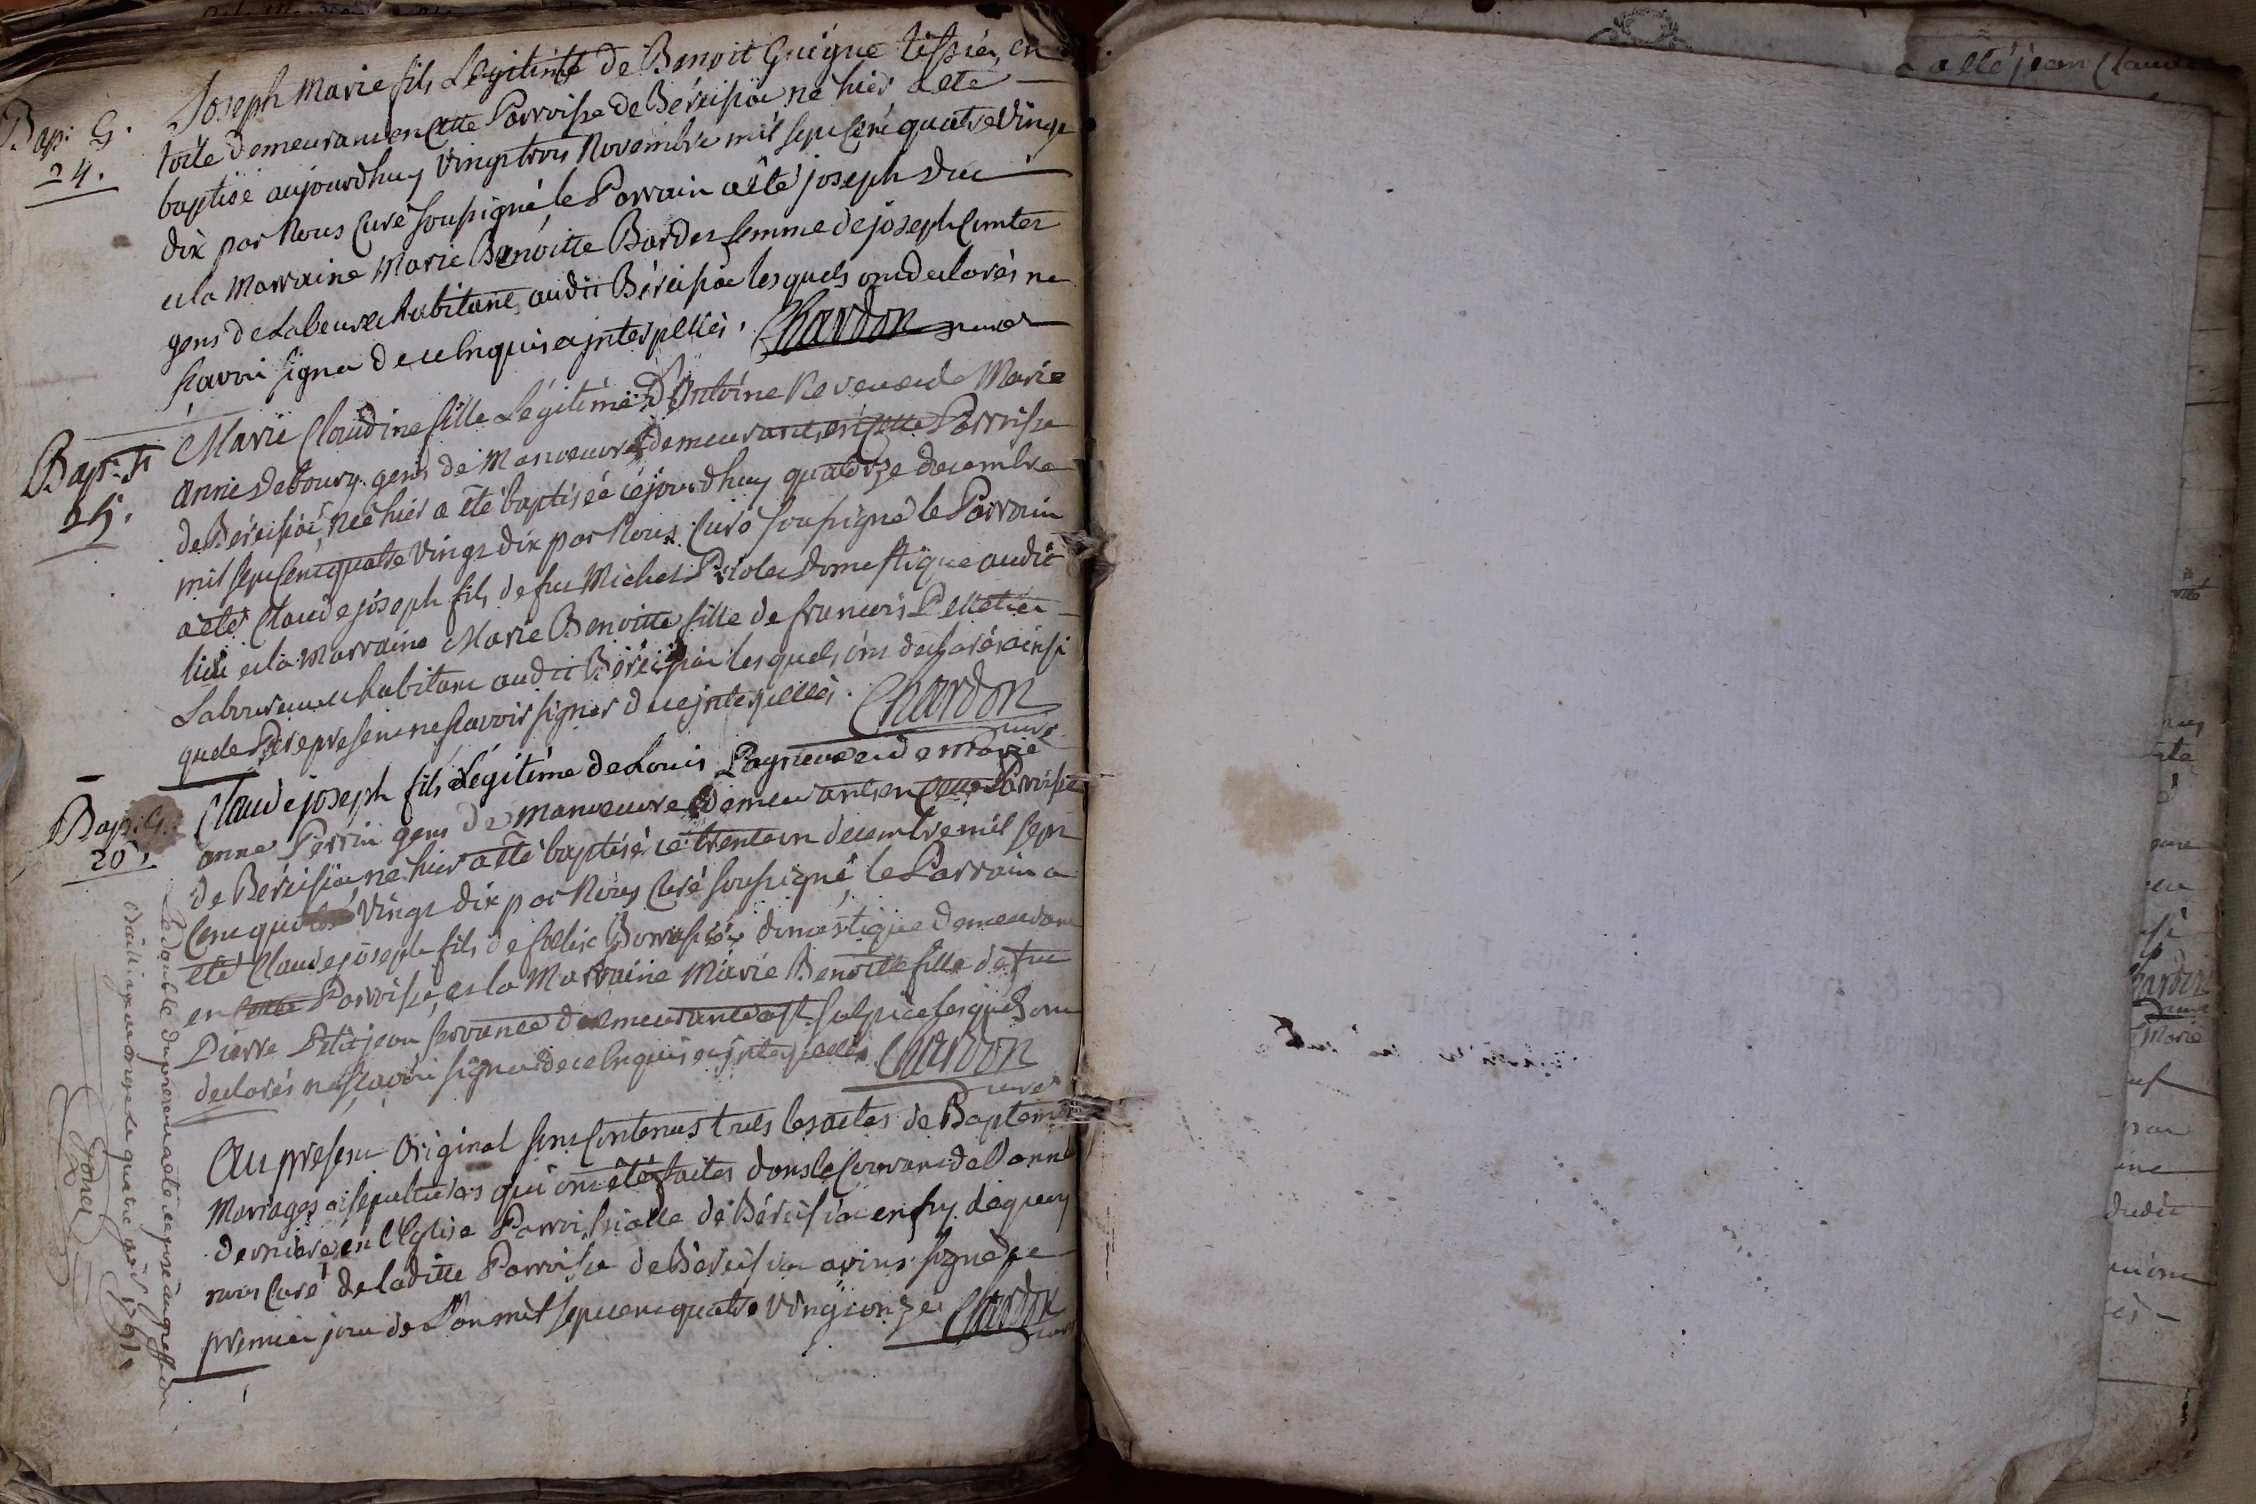 Bap: G.
24.
Joseph Marie fils Légitime de Benoit Guigue tissier en
toile demeurant en Cette Parroisse de Béreisiat né hier a eté
baptisé aujourdhuy vingt trois Novembre mil sept cent quatre vingt
dix par Nous Curé soussigné, le Parrain a été joseph Duc
et la Marraine Marie Benoitte Bardet femme de joseph
gens de Labeur habitant audit Béreisiat lesquels ont declarés ne
scavoir signer de ce Enquis et jnterpellés. Chardon curé
Bap: F
25.
Marie Claudine fille Légitime d'Antoine et de Marie
anne Debourg gens de Manoeuvre demeurants en Cette Parroisse
de Béreisiat, Née hier a été baptisée cejourdhuy quatorze decembre
mil sept cent quatre vingt dix par Nous Curé soussigné le Parrain
a eté Claude joseph fils de feu Michel domestique audit
lieu et la Marraine Marie Benoitte fille de francois Pelletier
Laboureur habitant audit Béreisiat lesquels ont declarés ainsi
que le Pere present ne scavoir signer de ce jnterpellés. Chardon
curé
Bap: G.
26.
Claude joseph fils Légitime de Louis et de Marie
anne Perrin gens de manoeuvre demeurants en Cette Parroisse
de Béreisiat né hier a été baptisé ce trente un decembre mil sept
Cent quatre Vingt dix par Nous Curé soussigné le Parrain a
été Claude joseph fils de domestique demeurant
en Cette Parroisse, et la Marraine Marie Benoitte fille de feu
Pierre Petitjean servante demeurante a St. Sulpice lesquels ont
declarés ne scavoir signer de ce Enquis et jnterpellés Chardon
curé
Au present Original sont Contenus tous les actes de Baptemes
Marriages et sepultures qui ont été faites dans le Courant de l'année
derniere en l'Eglise Parroissialle de Béreisiat en foy de quoy
nous Curé de laditte Parroisse de Béreisiat avons signé ce
premier jour de L'an mil sept cent quatre vingt onze Chardon
curé
Le double du present acte deposé au greffe du
Baillage de le quatre 1791.
Gonet
a eté jean Claude
Chardon
curé
Marie
dudit